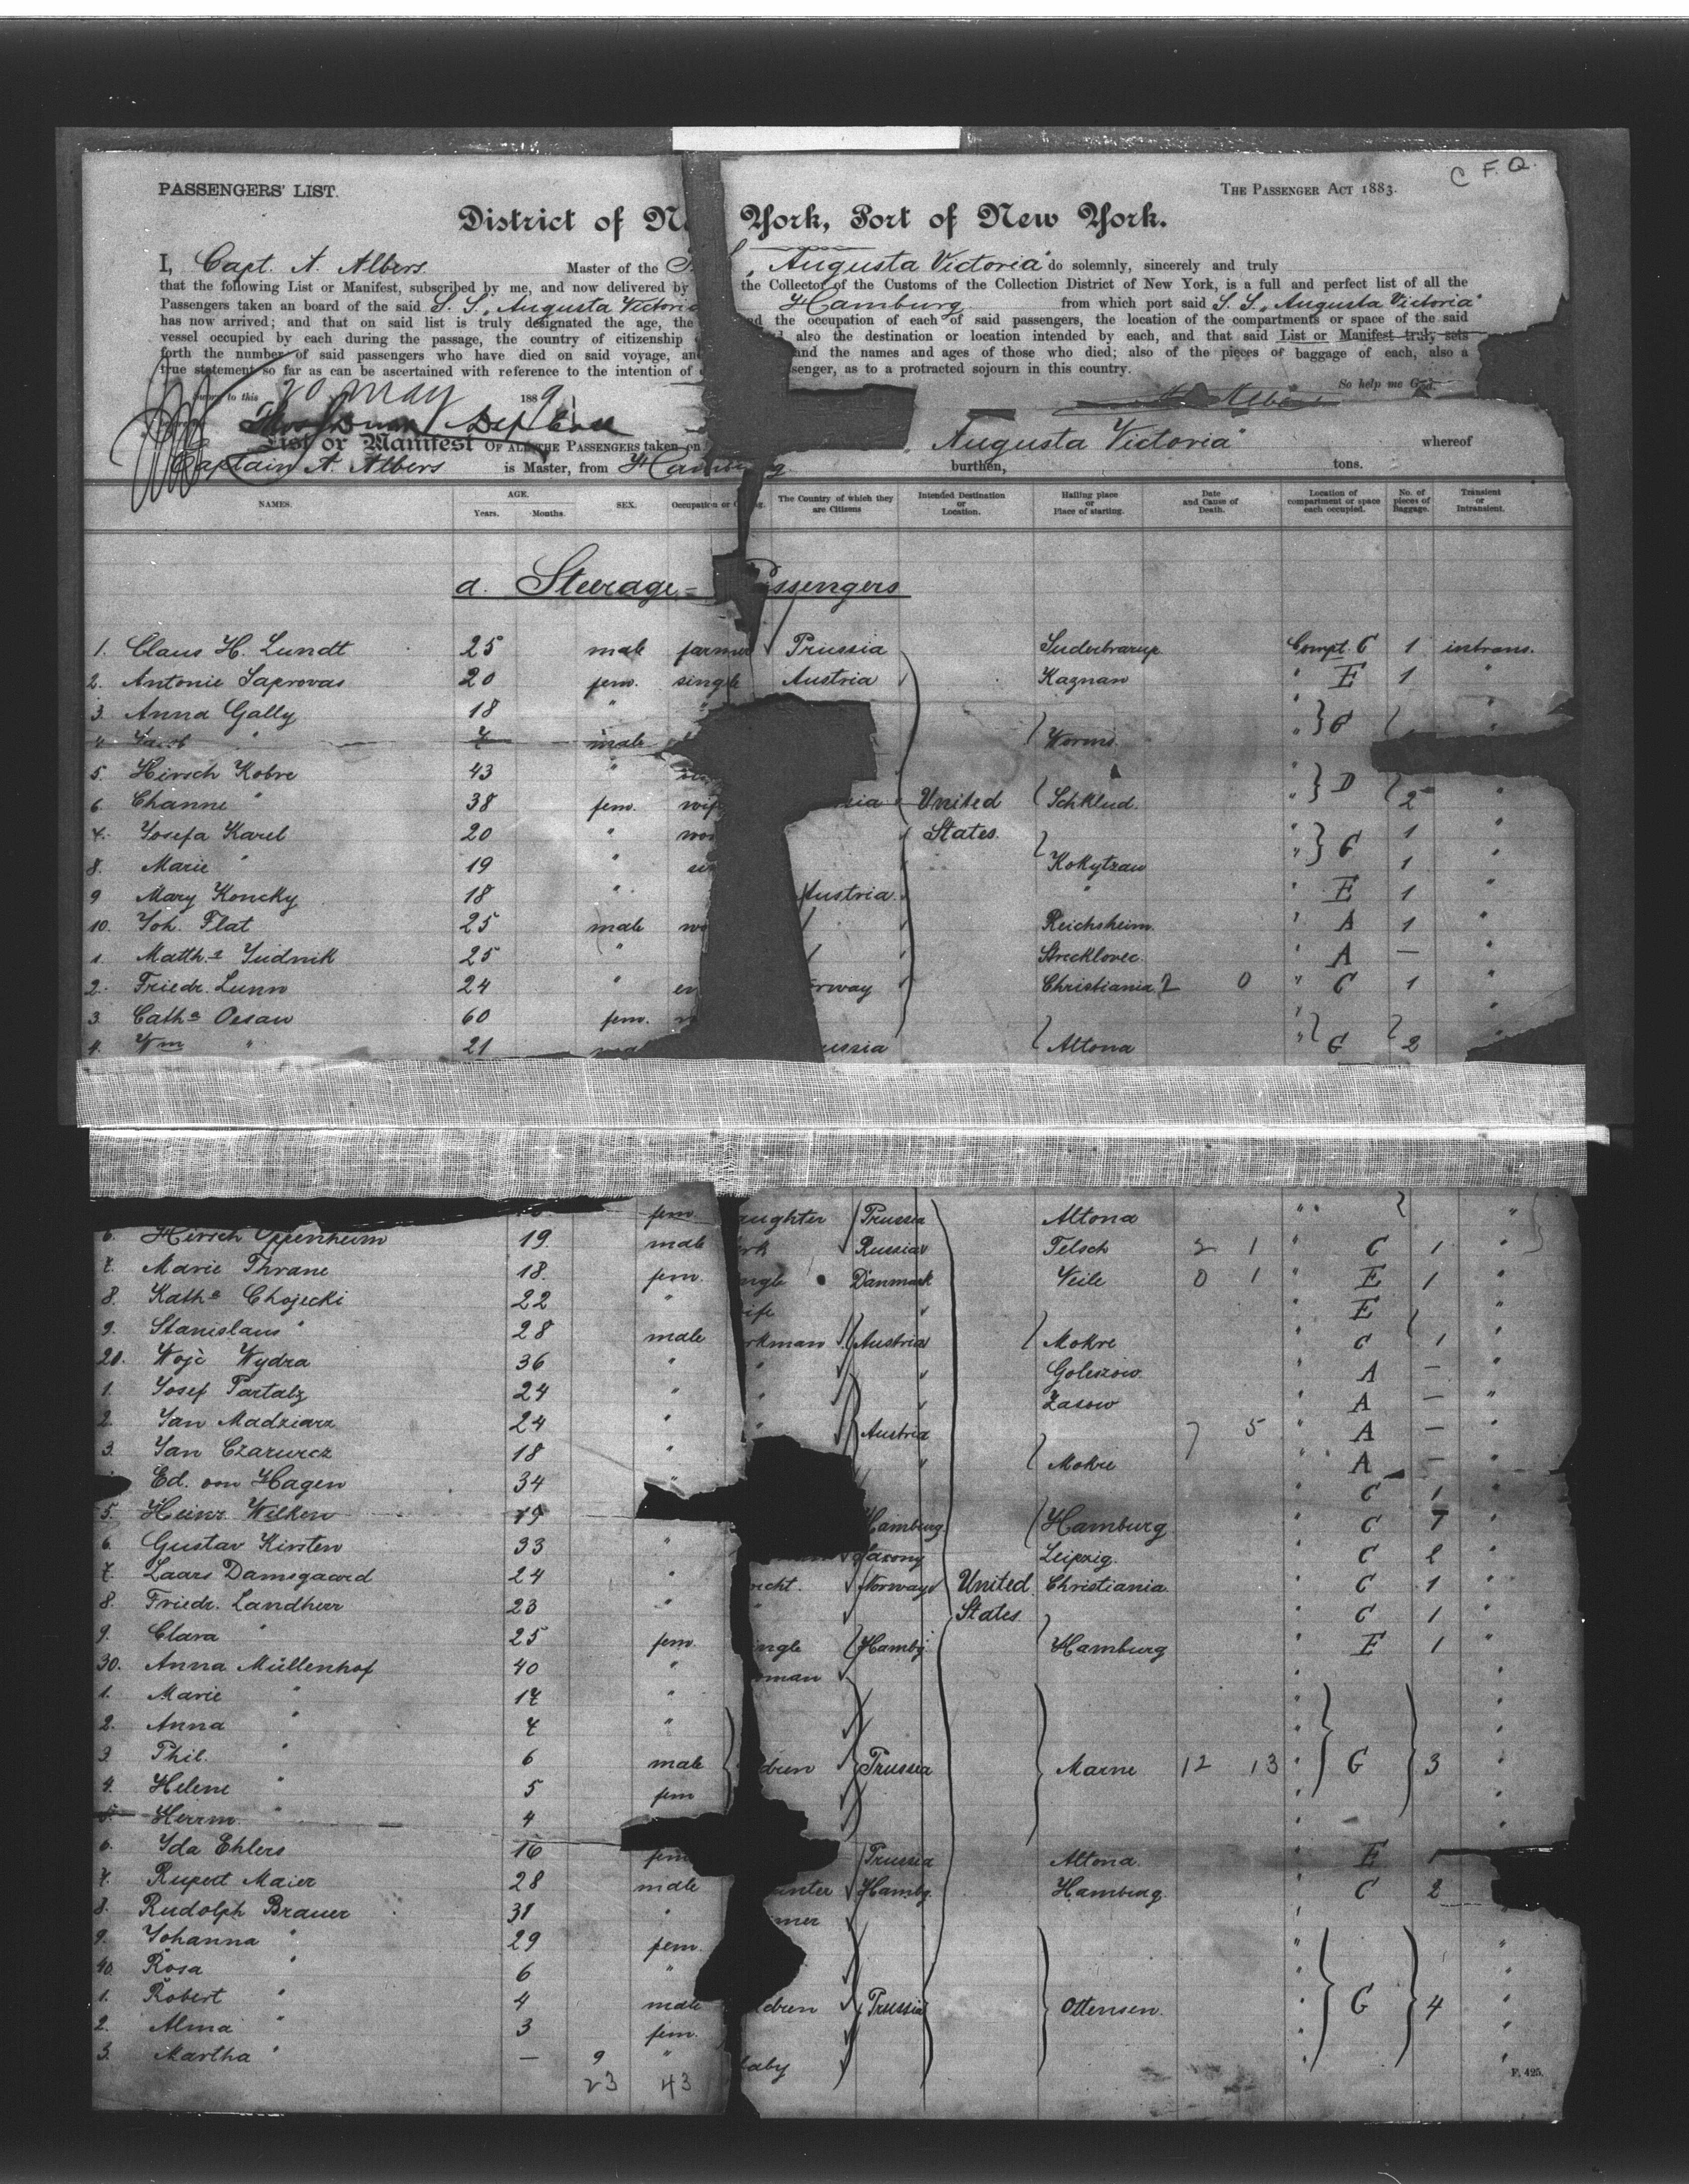 C F. Q.
PASSENGERS' LIST. THE PASSENGER ACT 1883.
District of Ne York, Port of New York.
I, Capt. A. Albers Master of the S. „Augusta Victoria" do solemnly, sincerely and truly
that the following List or Manifest, subscribed by me, and now delivered by the Collector of the Customs of the Collection District of New York, is a full and perfect list of all the
Passengers taken an board of the said S. S. „Augusta Victoria Hamburg from which port said S. S. „Augusta Victoria"
has now arrived; and that on said list is truly designated the age, the nd the occupation of each of said passengers, the location of the compartments or space of the said
vessel occupied by each during the passage, the country of citizenship also the destination or location intended by each, and that said List or Manifest truly sets
forth the number of said passengers who have died on said voyage, an and the names and ages of those who died; also of the pieces of baggage of each, also a
true statement so far as can be ascertained with reference to the intention of senger, as to a protracted sojourn in this country.
to this 20 May 1889 So help me God.
List or Manifest OF ALL THE PASSENGERS taken on „Augusta Victoria" whereof
Captain A. Albers is Master, from Hamburg burthen, tons.
NAMES. AGE. Years. Months. SEX. Occupation or The Country of which they are Citizens Intended Destination or Location. Hailing place or Place of starting. Date and Cause of Death. Location of compartment or space each occupied. No. of pieces of Baggage. Transient or Intransient.
a. Steerage=Passengers
1. Claus H. Lundt 25 male farmer Prussia Suderbrarup Compt. C 1 intrans.
2. Antonie Saprovas 20 fem. single Austria Kaznan " E 1 "
3. Anna Gally 18 " " G "
4. Jacob " 7 male Worms "
5. Hirsch Kobre 43 " " D
6. Channe " 38 fem. wif sia United Schklud. " 2 "
7. Josefa Karel 20 " wo States. " G 1 "
8. Marie " 19 " sin Kokytzau " 1 "
9 Mary Koncky 18 " Austria. " " E 1 "
10. Joh. Flat 25 male wo Reichsheim. " A 1 "
1. Matth.s Judnik 25 " Strecklovec. " A — "
2. Friedr. Lunn 24 " rway Christiania 2 0 " C 1 "
3. Cath.a Oesau 60 fem. "
4. Wm " 21 ussia Altona " G 2 "
fem. aughter Prussia Altona " "
6. Hirsch Oppenheim 19. male rk Russia Telsch 2 1 " C 1 "
7. Marie Thrane 18. fem. ngle Danmark Veile 0 1 " E 1 "
8. Kath.a Chojecki 22 " ife " " E "
9. Stanislaus " 28 male rkman Austria Mokre " C 1 "
20. Wojc Wydra 36 " " " Goleszow. " A — "
1. Josef Partalz 24 " " " Zasow " A — "
2. Jan Madziarz 24 " " Austria 7 5 " A — "
3. Jan Czarurcz 18 " " Mokre " A — "
Ed. von Hagen 34 " C 1 "
5. Heinr. Wilken 19 Hamburg. Hamburg " C 1 "
6. Gustav Kirsten 33 " Saxony Leipzig. " C 2 "
7. Laars Damsgaard 24 " echt. Norway United Christiania. " C 1 "
8. Friedr. Landherr 23 " " States " C 1 "
9. Clara " 25 fem. ingle Hambg. Hamburg " E 1 "
30. Anna Müllenhof 40 " oman " "
1. Marie " 17 " " "
2. Anna " 7 " " "
3. Phil. " 6 male dren Prussia Marne 12 13 " G 3 "
4. Helene " 5 fem " "
5. Herrm. " 4 " "
6. Ida Ehlers 16 fem Prussia Altona. " E 1
7. Rupert Maier 28 male ainter Hambg. Hamburg. " C 2
8. Rudolph Brauer 31 " rmer "
9. Johanna " 29 fem. " "
40. Rosa " 6 " " "
1. Robert " 4 male dren Prussia Ottensen. " G 4 "
2. Alma " 3 fem. " "
3. Martha " — 9 " baby " "
23 43
F. 425.